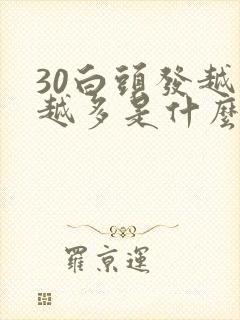 30白頭發越
越多是什麼
羅京運